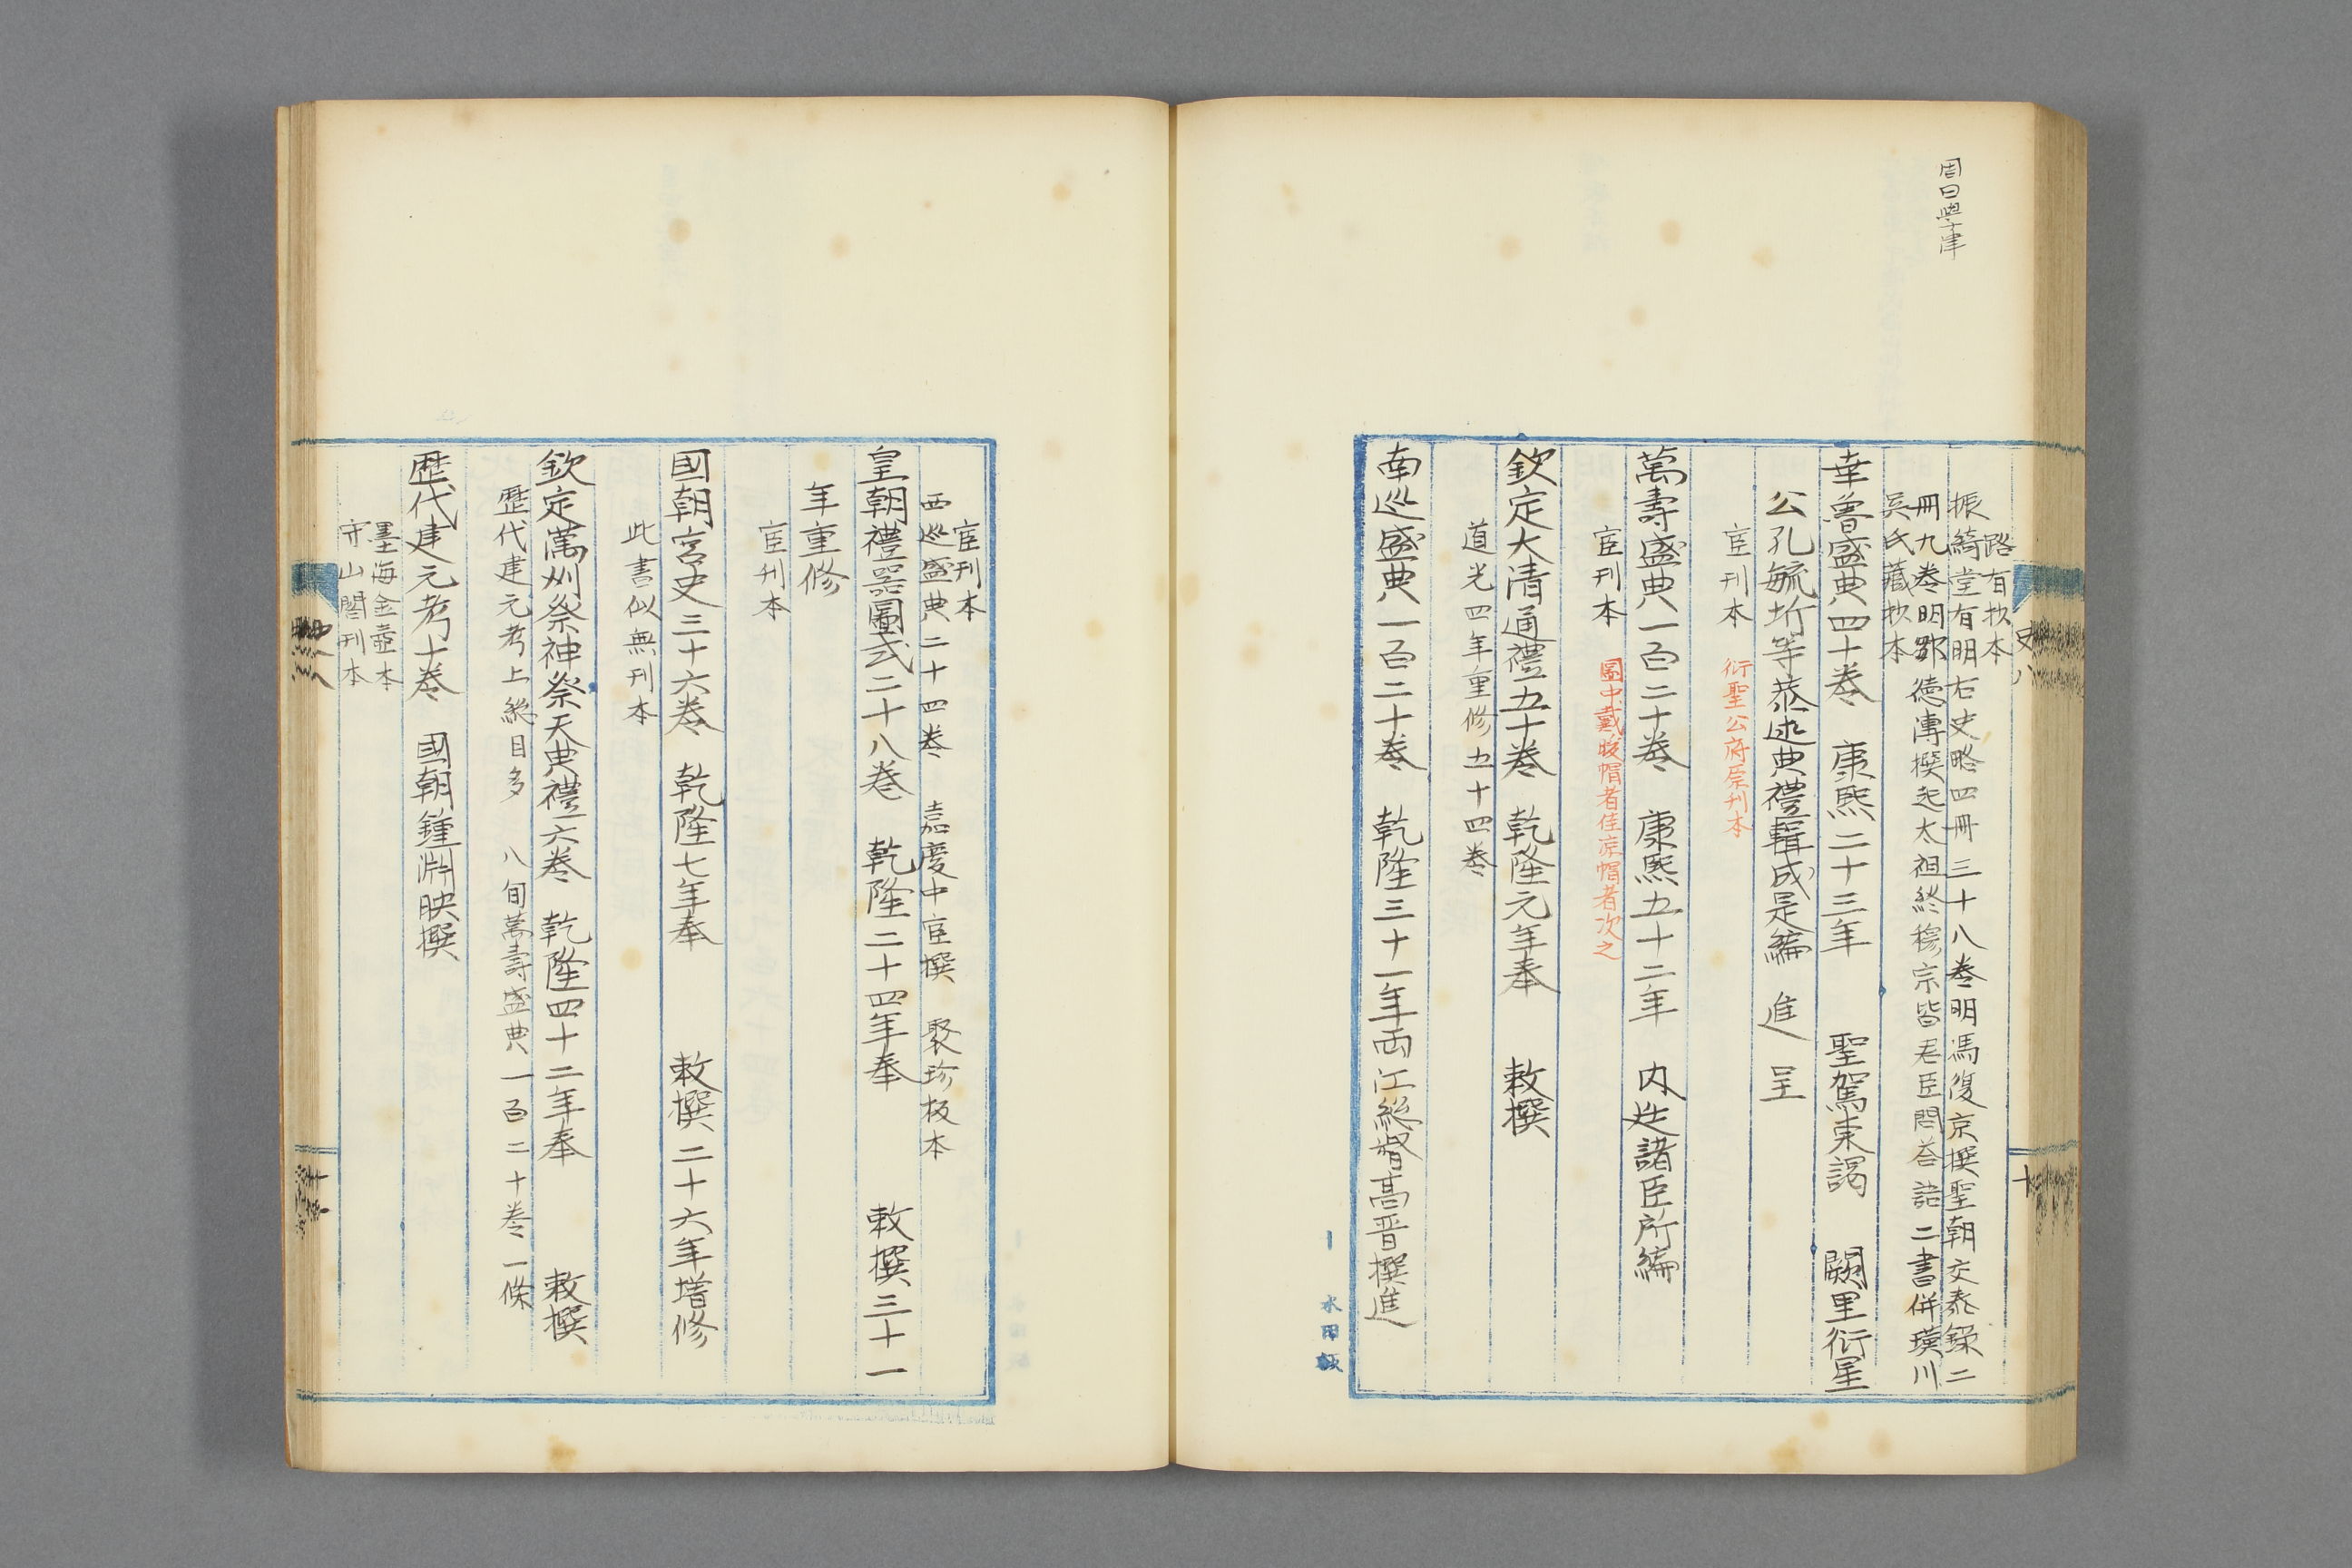 路有抄本
振綺堂有明右史略四冊三十八卷明馮復京撰聖朝交泰錄二
冊九卷明鄒德溥撰起太祖終穆宗皆君臣問荅語二書併璜川
吳氏藏抄本
幸魯盛典四十卷 康熙二十三年 聖駕東謁 闕里衍聖
公孔毓圻等恭述典禮輯成是編 進 呈
宦刊本 衍聖公府原刊本
萬壽盛典一百二十卷 康熙五十二年 内廷諸臣所編
宦刊本 圖中戴暖帽者佳涼帽者次之
欽定大清通禮五十卷 乾隆元年奉 敕撰
道光四年重修五十四卷
南巡盛典一百二十卷 乾隆三十一年兩江總督高晋撰進
史八
十
宦刊本
西巡盛典二十四卷 嘉慶中宦撰 聚珍板本
皇朝禮器圖式二十八卷 乾隆二十四年奉 敕撰三十一
年重修
宦刊本
國朝宮史三十六卷 乾隆七年奉 敕撰二十六年增修
此書似無刊本
欽定萬刈祭神祭天典禮六卷 乾隆四十二年奉 敕撰
歷代建元考上總目多 八旬萬壽盛典一百二十卷一條
歷代建元考十卷 國朝鍾淵映撰
墨海金壺本
守山閣刊本